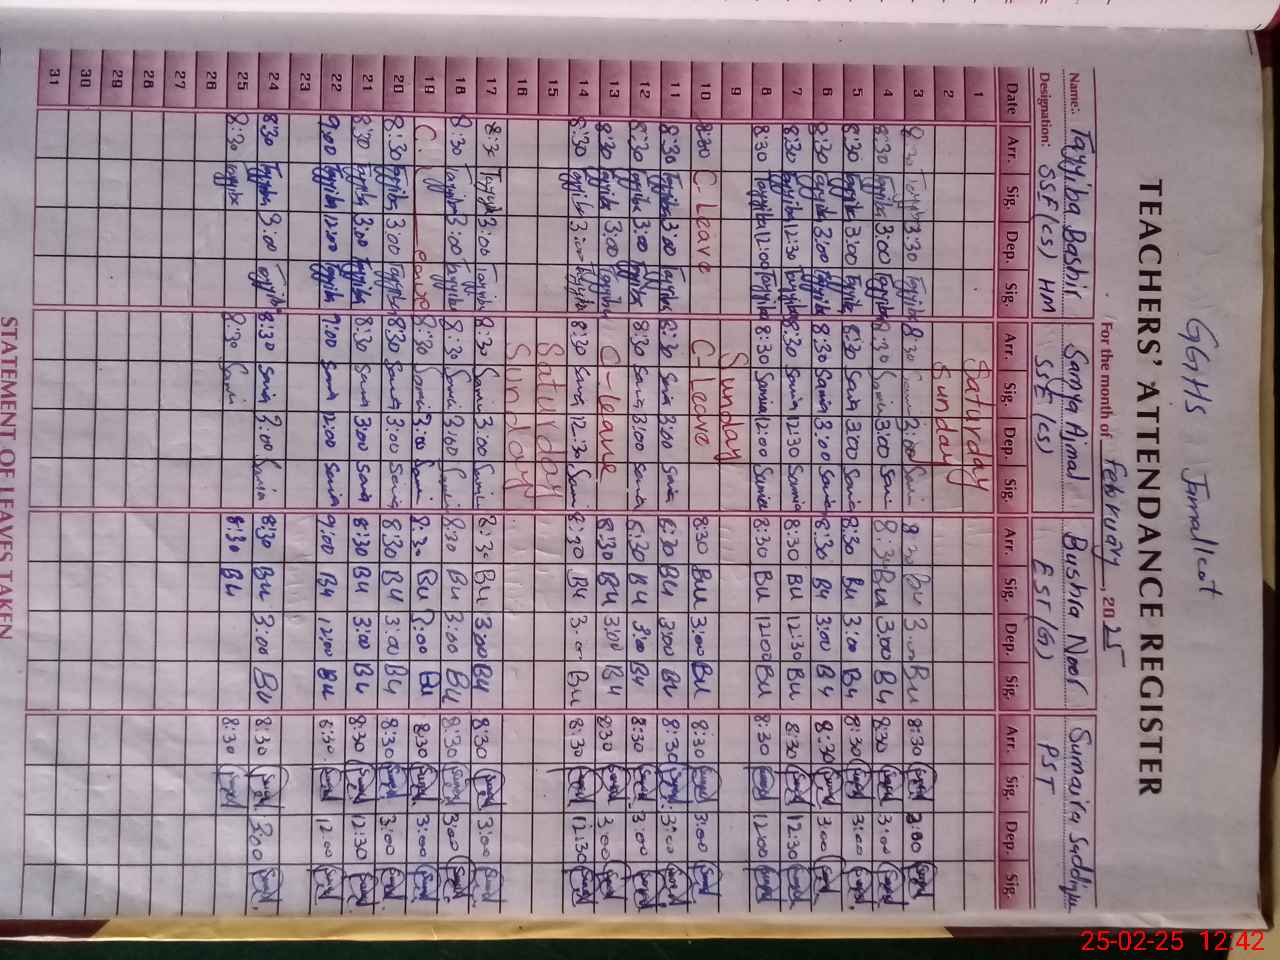 GGHS Jamallcot
TEACHERS' ATTENDANCE REGISTER
For the month of February, 2025
Name: Tayyiba Bashir Samya Ajmal Bushra Noor Sumaira Saddiqa
Designation: SSE (CS) HM SSE (CS) EST (G) PST
Date Arr. Sig. Dep. Sig. Arr. Sig. Dep. Sig. Arr. Sig. Dep. Sig. Arr. Sig. Dep. Sig.
1 Saturday
2 Sunday
3 8:30 Tayyiba 3:30 Tayyiba 8:30 3:00 8:30 Bu 3:00 Bu 8:30 3:00
4 8:30 Tayyiba 3:00 Tayyiba 8:30 3:00 8:30 Bu 3:00 Bu 8:30 3:00
5 8:30 Tayyiba 3:00 Tayyiba 8:30 Samia 3:00 Samia 8:30 Bu 3:00 Bu 8:30 3:00
6 8:30 Tayyiba 3:00 Tayyiba 8:30 Samia 3:00 Samia 8:30 Bu 3:00 Bu 8:30 3:00
7 8:30 Tayyiba 12:30 Tayyiba 8:30 Samia 12:30 Samia 8:30 Bu 12:30 Bu 8:30 12:30
8 8:30 Tayyiba 12:00 Tayyiba 8:30 Samia 12:00 Samia 8:30 Bu 12:00 Bu 8:30 12:00
9 Sunday
10 8:30 C-Leave C-Leave 8:30 Bu 3:00 Bu 8:30 3:00
11 8:30 Tayyiba 3:00 Tayyiba 8:30 Samia 3:00 Samia 8:30 Bu 3:00 Bu 8:30 3:00
12 8:30 Tayyiba 3:00 Tayyiba 8:30 Samia 3:00 Samia 8:30 Bu 3:00 Bu 8:30 3:00
13 8:30 Tayyiba 3:00 Tayyiba C-Leave 8:30 Bu 3:00 Bu 8:30 3:00
14 8:30 Tayyiba 3:00 Tayyiba 8:30 Samia 12:30 Samia 8:30 Bu 3:00 Bu 8:30 12:30
15 Saturday
16 Sunday
17 8:30 Tayyiba 3:00 Tayyiba 8:30 Samia 3:00 Samia 8:30 Bu 3:00 Bu 8:30 3:00
18 8:30 Tayyiba 3:00 Tayyiba 8:30 Samia 3:00 Samia 8:30 Bu 3:00 Bu 8:30 3:00
19 C. Leave 8:30 Samia 3:00 Samia 8:30 Bu 3:00 Bu 8:30 3:00
20 8:30 Tayyiba 3:00 Tayyiba 8:30 Samia 3:00 Samia 8:30 Bu 3:00 Bu 8:30 3:00
21 8:30 Tayyiba 3:00 Tayyiba 8:30 Samia 3:00 Samia 8:30 Bu 3:00 Bu 8:30 12:30
22 9:00 Tayyiba 12:00 Tayyiba 9:00 Samia 12:00 Samia 9:00 Bu 12:00 Bu 8:30 12:00
23
24 8:30 Tayyiba 3:00 Tayyiba 8:30 Samia 3:00 Samia 8:30 Bu 3:00 Bu 8:30 3:00
25 8:30 Tayyiba 8:30 Samia 8:30 Bu 8:30
26
27
28
29
30
31
STATEMENT OF LEAVES TAKEN
25-02-25 12:42